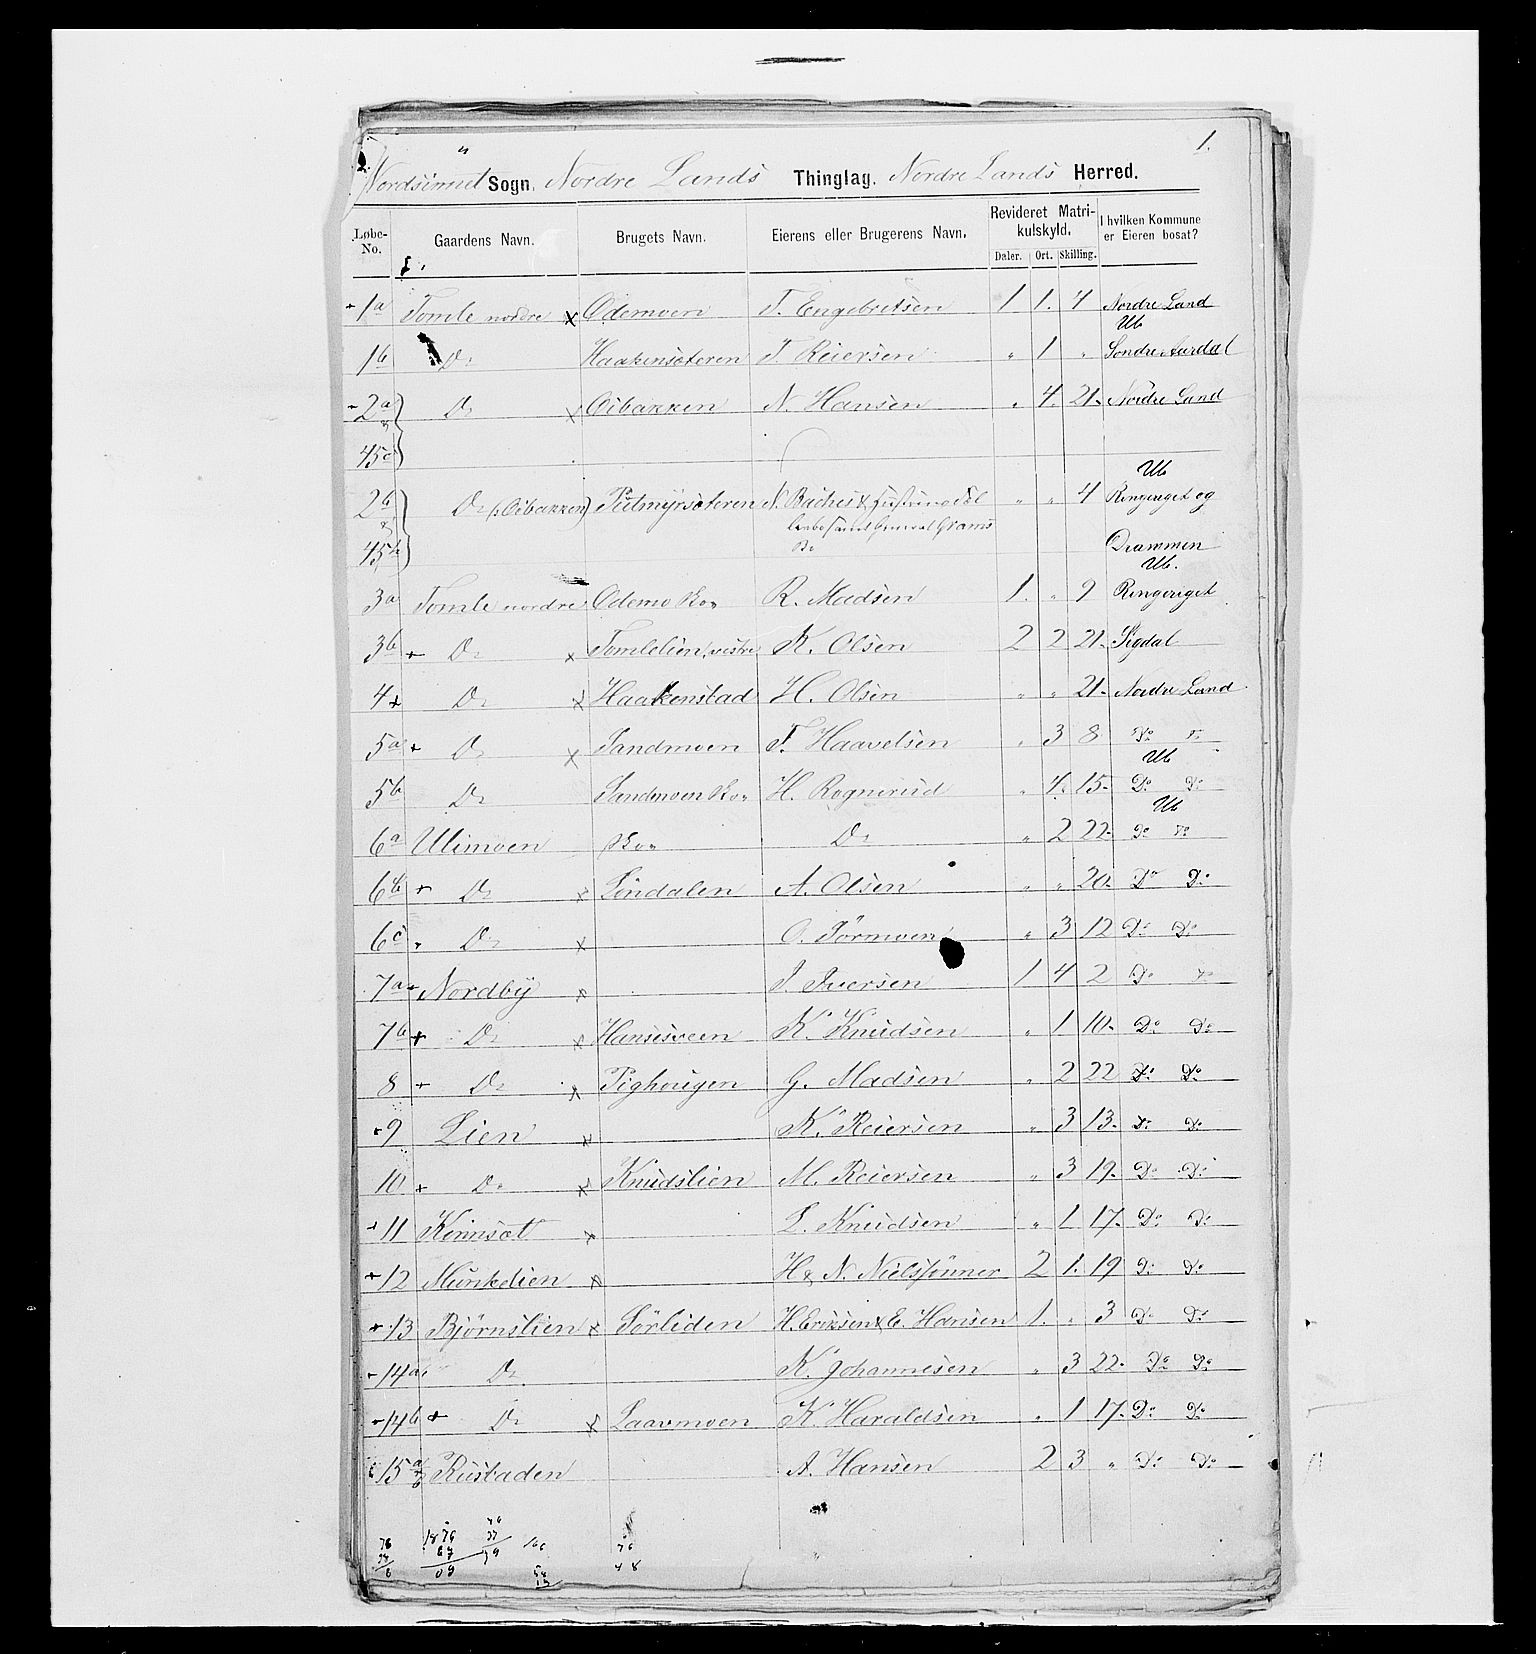 1.
Nordsinnet Sogn. Nordre Lands Thinglag. Nordre Lands Herred.
Løbe-No. Gaardens Navn. Brugets Navn. Eierens eller Brugerens Navn. Revideret Matrikulskyld. I hvilken Kommune er Eieren bosat?
Daler. Ort. Skilling.
1a Tomle nordre x Odemoen T. Engebretsen 1 1. 4 Nordre Land
Ub
1b Do Haakensæteren T. Reiersen " 1 " Søndre Aurdal
2a Do x Oibakken N. Hansen " 4. 21. Nordre Land
45a
Ub
2b Do (Oibakken) Putmyrsæteren N. Baches & " " 4 Ringeriget og
45b Drammen
Ub.
3a Tomle nordre Odemo R. Madsen 1. " 9 Ringeriget
3b + Do x Tomlelien, vestre K. Olsen 2 2 21. Sigdal
4 + Do x Haakenstad H. Olsen " " 21. Nordre Land
5a + Do x Sandmoen T. Haavelsen " 3 8 Do Do
Ub
5b Do Sandmoen H. Rognerud " 4. 15. Do Do
Ub
6a Ulimoen Do " 2 22. Do Do
6b + Do x Sondalen A. Olsen " " 20. Do Do
6c Do x O. Tørmoen " 3 12 Do Do
7a Nordby x I. Iversen 1 4 2 Do Do
7b + Do x Hansesveen K. Knudsen " 1 10. Do Do
8 + Do x Pighougen G. Madsen " 2 22 Do Do
+ 9 Lien x K. Reiersen " 3 13. Do Do
10 + Do x Knudslien M. Reiersen " 3 19. Do Do
+ 11 Kinnsæt x L. Knudsen " 1 17. Do Do
+ 12 Munkelien x H & N. Nielssønner 2 1. 19 Do Do
+ 13 Bjørnslien x Sørliden H. Eriksen & E. Hansen 1. " 3 Do Do
14a Do K. Johannesen " 3 22. Do Do
14b + Do x Laavmoen K. Haraldsen " 1 17. Do Do
15 a b Rustaden A. Hansen 2 3 " Do Do
1876
67
09